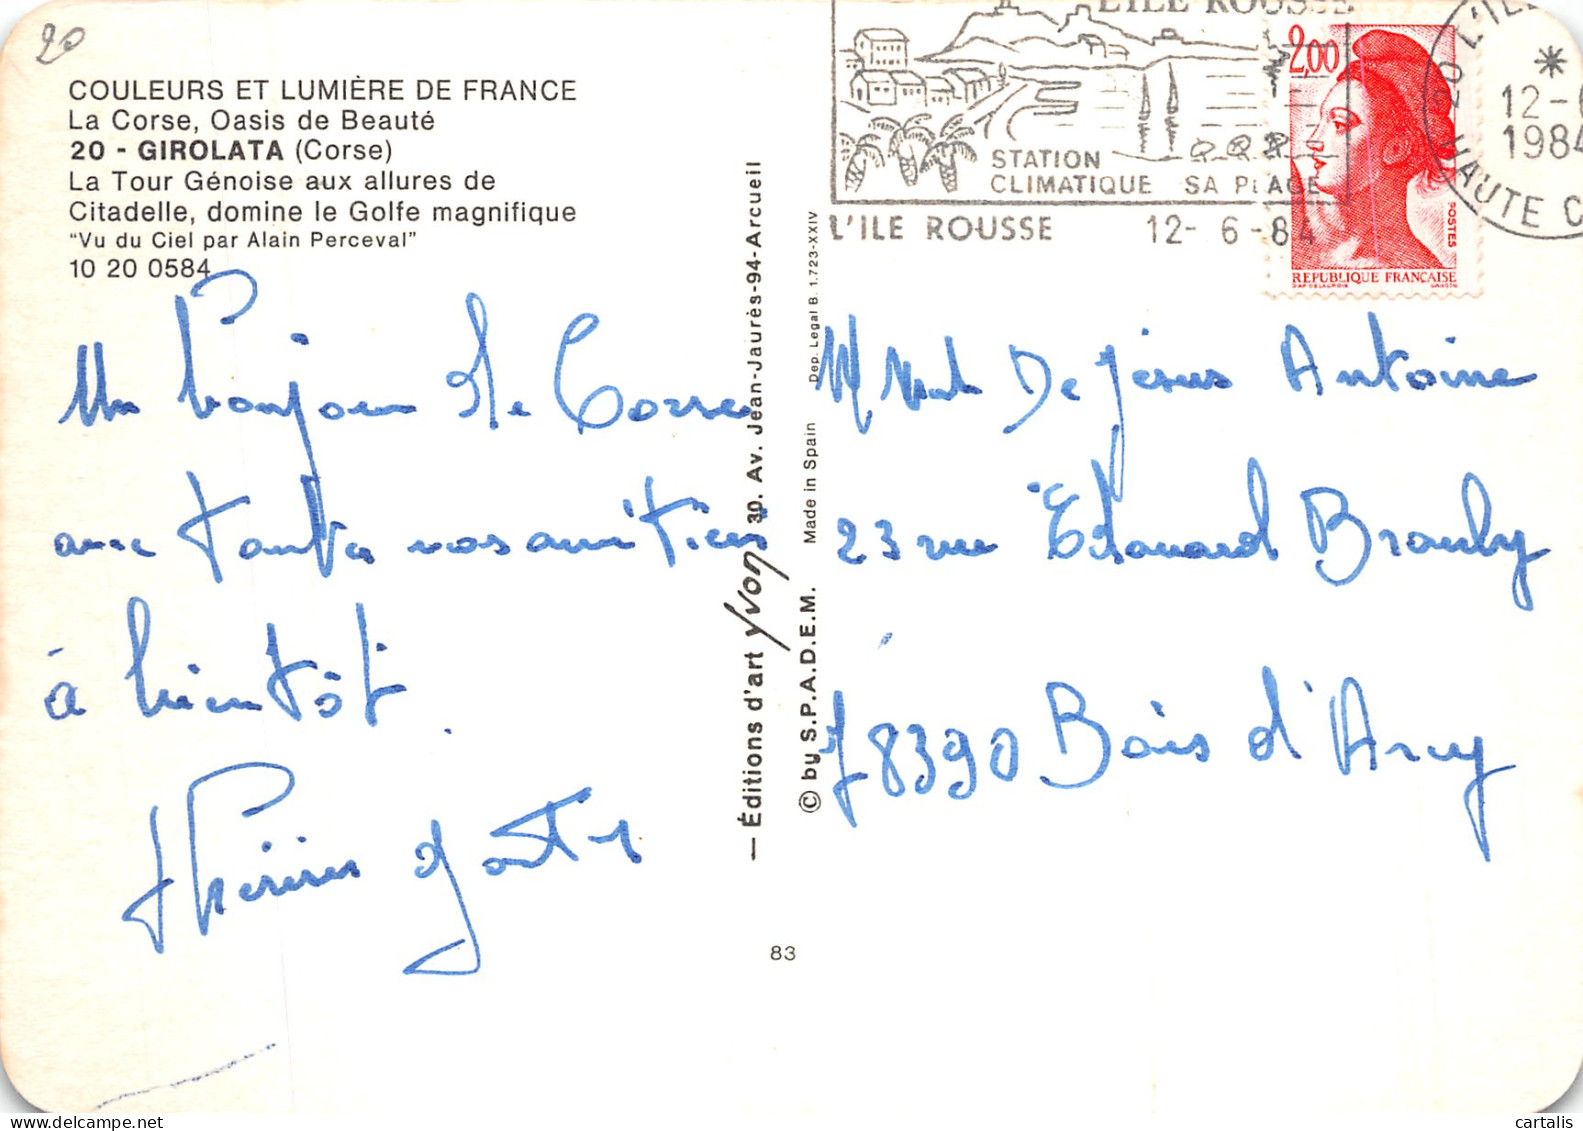 20
COULEURS ET LUMIÈRE DE FRANCE
La Corse, Oasis de Beauté
20 - GIROLATA (Corse)
La Tour Génoise aux allures de
Citadelle, domine le Golfe magnifique
"Vu du Ciel par Alain Perceval"
10 20 0584
Un bonjour de Corse
avec toutes nos amitiés
à bientôt.
L'ILE ROUSSE
STATION
CLIMATIQUE SA PLAGE
L'ILE ROUSSE 12-6-84
20 L'ILE
12-6
1984
HAUTE C
2,00
POSTES
REPUBLIQUE FRANÇAISE
— Éditions d'art Yvon 30. Av. Jean-Jaurès-94-Arcueil
© by S.P.A.D.E.M. Made in Spain Dep. Legal B. 1.723-XXIV
De Jesus Antoine
23 rue Edouard Branly
78390 Bois d'Arcy
83
cartalis